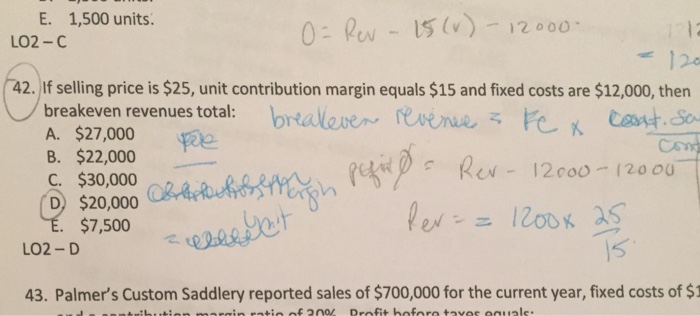 E. 1,500 units.
LO2 – C
0 = Rev - 15(v) - 12000
= 120
42. If selling price is $25, unit contribution margin equals $15 and fixed costs are $12,000, then
breakeven revenues total:
breakeven revenue = FC x
A. $27,000
B. $22,000
C. $30,000
D. $20,000
E. $7,500
LO2 – D
profit 0 = Rev - 12000 - 12000
Rev = = 1200 x 25
15
unit
43. Palmer's Custom Saddlery reported sales of $700,000 for the current year, fixed costs of $1
and a contribution margin ratio of 20%. Profit before taxes equals: